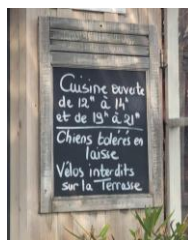 Cuisine ouverte
de 12H à 14H
et de 19H à 21H
Chiens tolérés en
laisse
Vélos interdits
sur la Terrasse